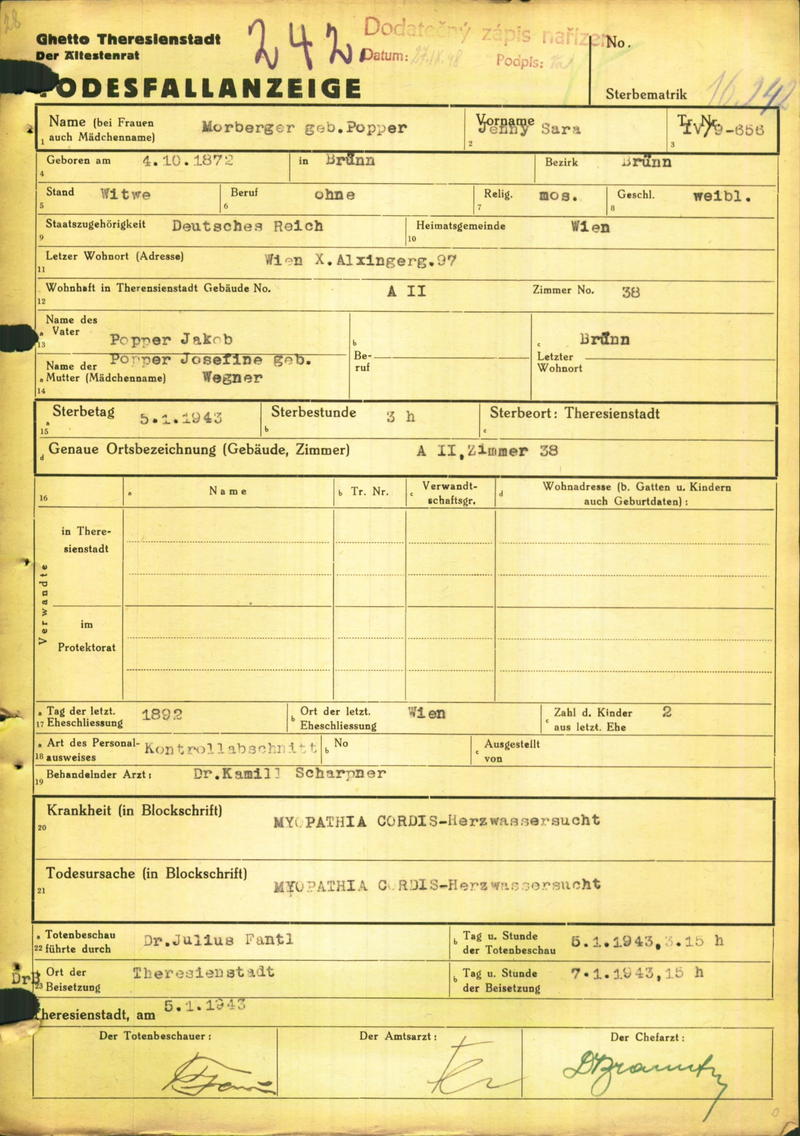 28
Ghetto Theresienstadt
Der Ältestenrat
242
Dodatečný zápis nařízen
Datum: 27.IX.48 Podpis:
No.
TODESFALLANZEIGE
Sterbematrik 16.242
Name (bei Frauen auch Mädchenname) Morberger geb.Popper
1
Vorname Jenny Sara
2
Tr. Nr. IV/9-656
3
Geboren am 4.10.1872 in Brünn Bezirk Brünn
4
Stand Witwe Beruf ohne Relig. mos. Geschl. weibl.
5 6 7 8
Staatszugehörigkeit Deutsches Reich Heimatsgemeinde Wien
9 10
Letzer Wohnort (Adresse) Wien X.Alxingerg.97
11
Wohnhaft in Therensienstadt Gebäude No. A II Zimmer No. 38
12
Name des
a Vater Popper Jakob
13
b Beruf
c Brünn
Letzter Wohnort
Name der Popper Josefine geb.
a Mutter (Mädchenname) Wegner
14
Sterbetag 5.1.1943 Sterbestunde 3 h Sterbeort: Theresienstadt
15 a b c
d Genaue Ortsbezeichnung (Gebäude, Zimmer) A II,Zimmer 38
16 a Name b Tr. Nr. c Verwandtschaftsgr. d Wohnadresse (b. Gatten u. Kindern auch Geburtdaten) :
Verwandte
in Theresienstadt
im Protektorat
a Tag der letzt. 1892 b Ort der letzt. Wien c Zahl d. Kinder 2
17 Eheschliessung Eheschliessung aus letzt. Ehe
a Art des Personal- Kontrollabschnitt b No c Ausgestellt
18 ausweises von
Behandelnder Arzt: Dr.Kamill Scharpner
19
Krankheit (in Blockschrift) MYOPATHIA CORDIS-Herzwassersucht
20
Todesursache (in Blockschrift) MYOPATHIA CORDIS-Herzwassersucht
21
a Totenbeschau Dr.Julius Fantl b Tag u. Stunde 5.1.1943,3.15 h
22 führte durch der Totenbeschau
DrB
a Ort der Theresienstadt b Tag u. Stunde 7.1.1943,15 h
23 Beisetzung der Beisetzung
Theresienstadt, am 5.1.1943
Der Totenbeschauer : Der Amtsarzt : Der Chefarzt :